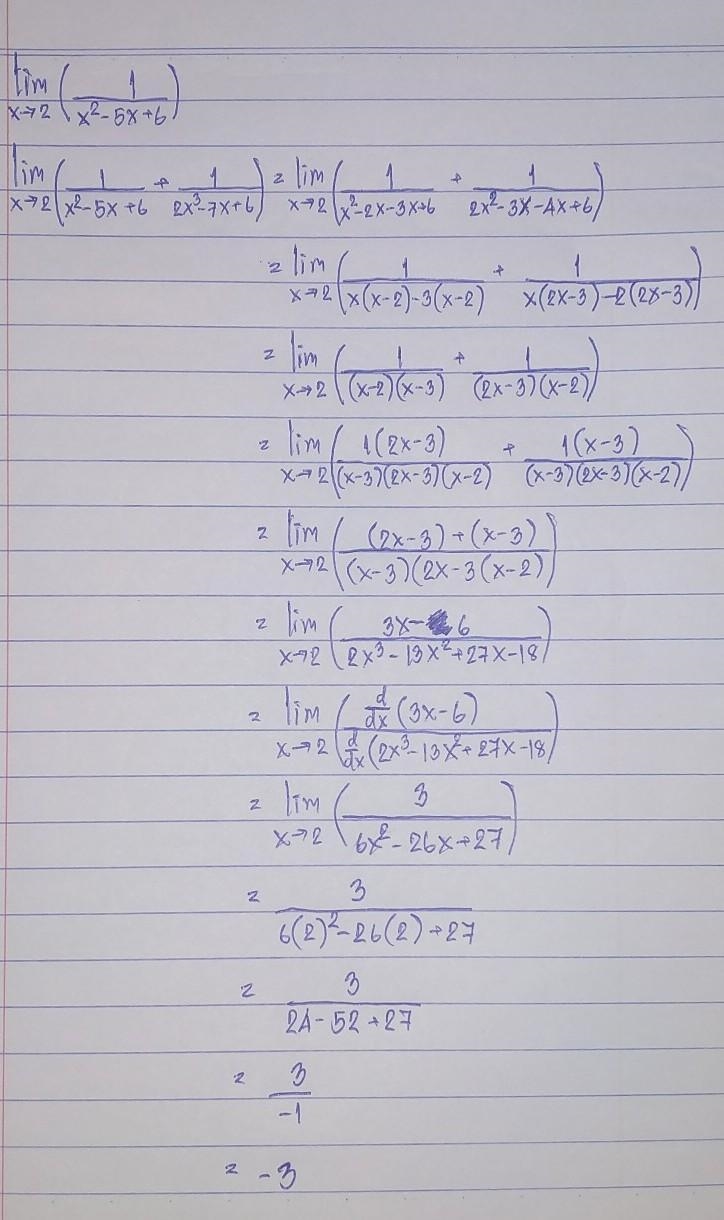 lim x→2 (1/(x²-5x+6))
lim x→2 (1/(x²-5x+6) + 1/(2x³-7x+6)) = lim x→2 (1/(x²-2x-3x+6) + 1/(2x²-3x-4x+6))
= lim x→2 (1/(x(x-2)-3(x-2)) + 1/(x(2x-3)-2(2x-3)))
= lim x→2 (1/((x-2)(x-3)) + 1/((2x-3)(x-2)))
= lim x→2 (1(2x-3)/((x-3)(2x-3)(x-2)) + 1(x-3)/((x-3)(2x-3)(x-2)))
= lim x→2 (((2x-3)+(x-3))/((x-3)(2x-3(x-2)))
= lim x→2 ((3x-6)/(2x³-13x²+27x-18))
= lim x→2 (d/dx (3x-6) / d/dx (2x³-13x²+27x-18))
= lim x→2 (3/(6x²-26x+27))
= 3/(6(2)²-26(2)+27)
= 3/(24-52+27)
= 3/-1
= -3